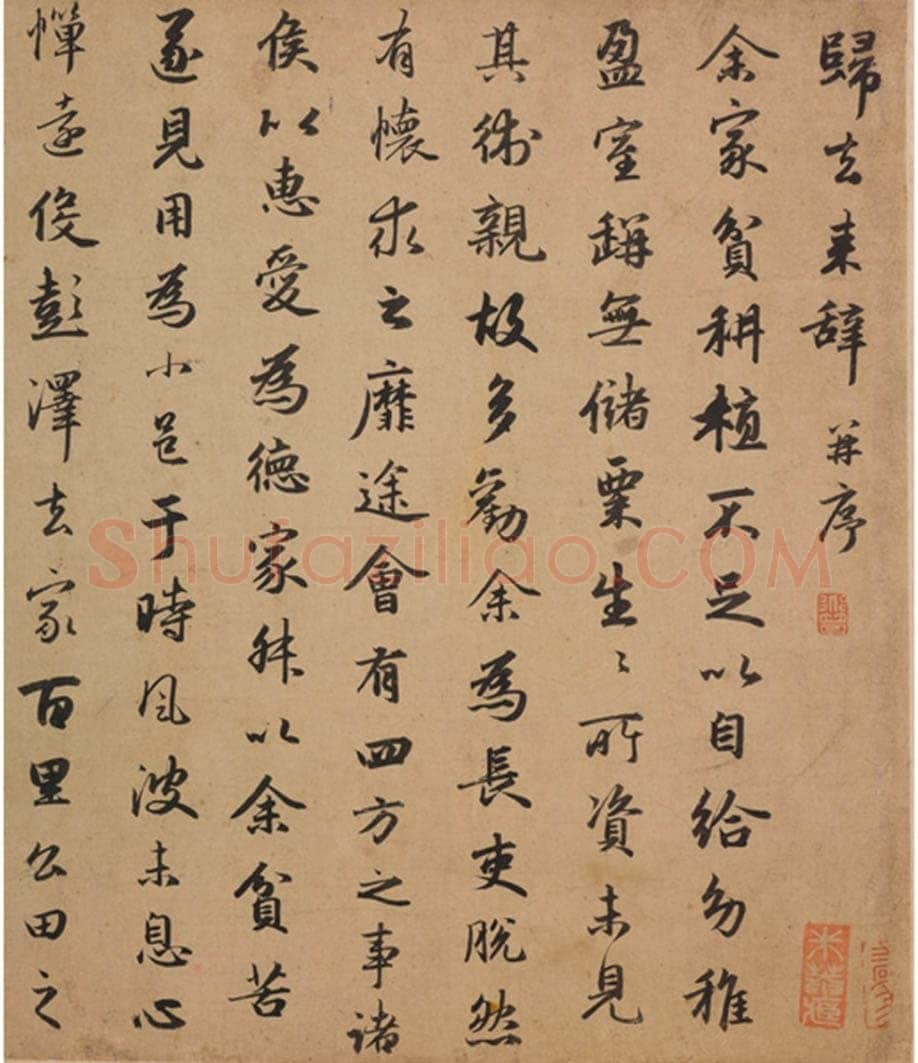 歸去来辞并序
余家貧耕植不足以自給幼稚
盈室缾無儲粟生〻所資未見
其術親故多勸余為長吏脫然
有懷求之靡途會有四方之事諸
侯以惠愛為德家叔以余貧苦
遂見用為小邑于時風波未息心
憚遠役彭澤去家百里公田之
Shufaziliao.COM